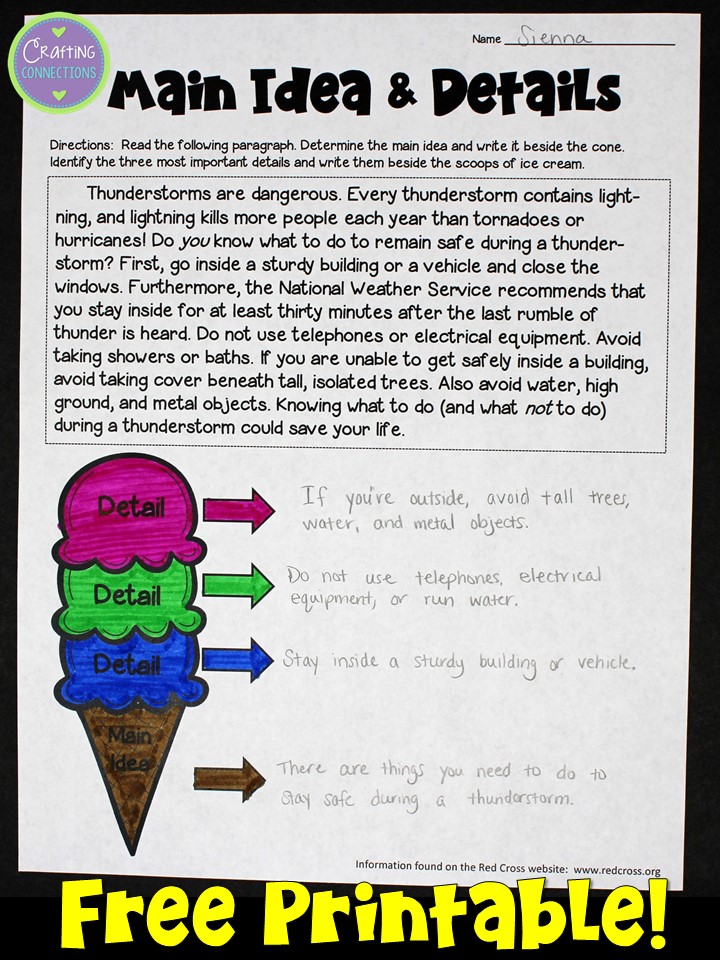 Crafting
CONNECTIONS
Name Sienna
Main Idea & Details
Directions: Read the following paragraph. Determine the main idea and write it beside the cone.
Identify the three most important details and write them beside the scoops of ice cream.
Thunderstorms are dangerous. Every thunderstorm contains light-
ning, and lightning kills more people each year than tornadoes or
hurricanes! Do you know what to do to remain safe during a thunder-
storm? First, go inside a sturdy building or a vehicle and close the
windows. Furthermore, the National Weather Service recommends that
you stay inside for at least thirty minutes after the last rumble of
thunder is heard. Do not use telephones or electrical equipment. Avoid
taking showers or baths. If you are unable to get safely inside a building,
avoid taking cover beneath tall, isolated trees. Also avoid water, high
ground, and metal objects. Knowing what to do (and what not to do)
during a thunderstorm could save your life.
Detail
If you're outside, avoid tall trees,
water, and metal objects.
Detail
Do not use telephones, electrical
equipment, or run water.
Detail
Stay inside a sturdy building or vehicle.
Main
Idea
There are things you need to do to
stay safe during a thunderstorm.
Information found on the Red Cross website: www.redcross.org
Free Printable!